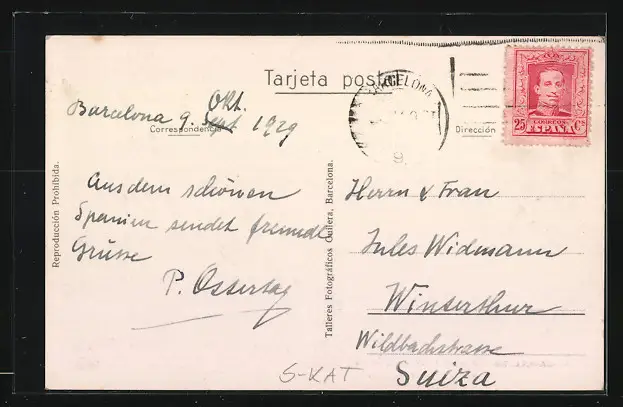 Tarjeta postal
BARCELONA
9.
25 CORREOS Cs
ESPAÑA
Okt.
Barcelona 9. Sept 1929
Correspondencia
Dirección
Aus dem schönen
Spanien sendet freundl
Grüsse
P. Ostertag
Herrn & Frau
Jules Widmann
Winterthur
Wildbachstrasse
Suiza
S-KAT
Reproducción Prohibida.
Talleres Fotográficos Guilera, Barcelona.